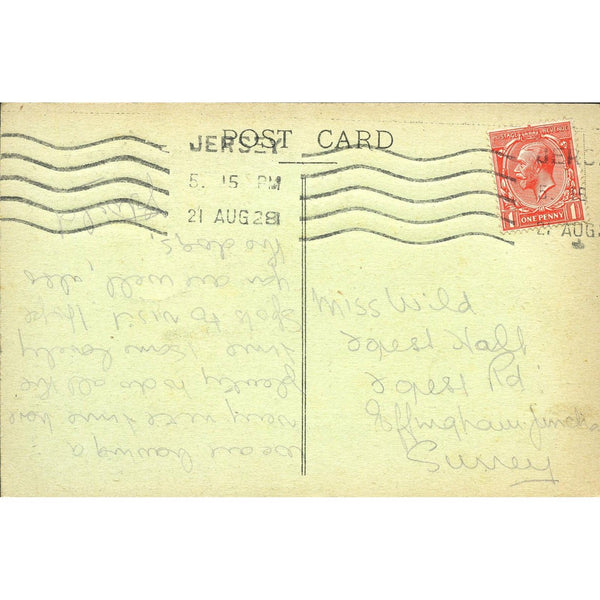 POST CARD
JERSEY
5. 15 PM
21 AUG 28
POSTAGE REVENUE
ONE PENNY
JERSEY
15
21 AUG 2
we are having a
very nice time have
plenty to do all the
time some lovely
spots to visit I hope
you are well, also
the dogs,
Miss Wild
Halt
Rd
Effingham Junction
Surrey